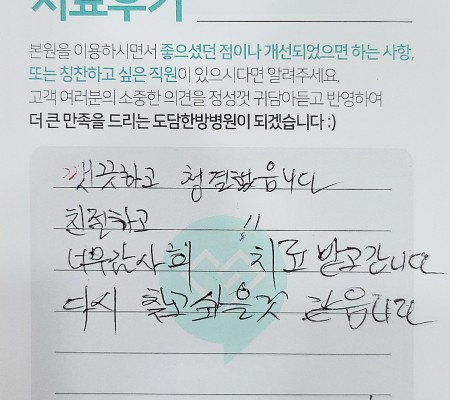 치료후기
본원을 이용하시면서 좋으셨던 점이나 개선되었으면 하는 사항,
또는 칭찬하고 싶은 직원이 있으시다면 알려주세요.
고객 여러분의 소중한 의견을 정성껏 귀담아듣고 반영하여
더 큰 만족을 드리는 도담한방병원이 되겠습니다 :)
깻끗하고 청결했읍니다
친절하고 !!
너무감사히 치료 받고갑니다
다시 찾고싶을것 같읍니다